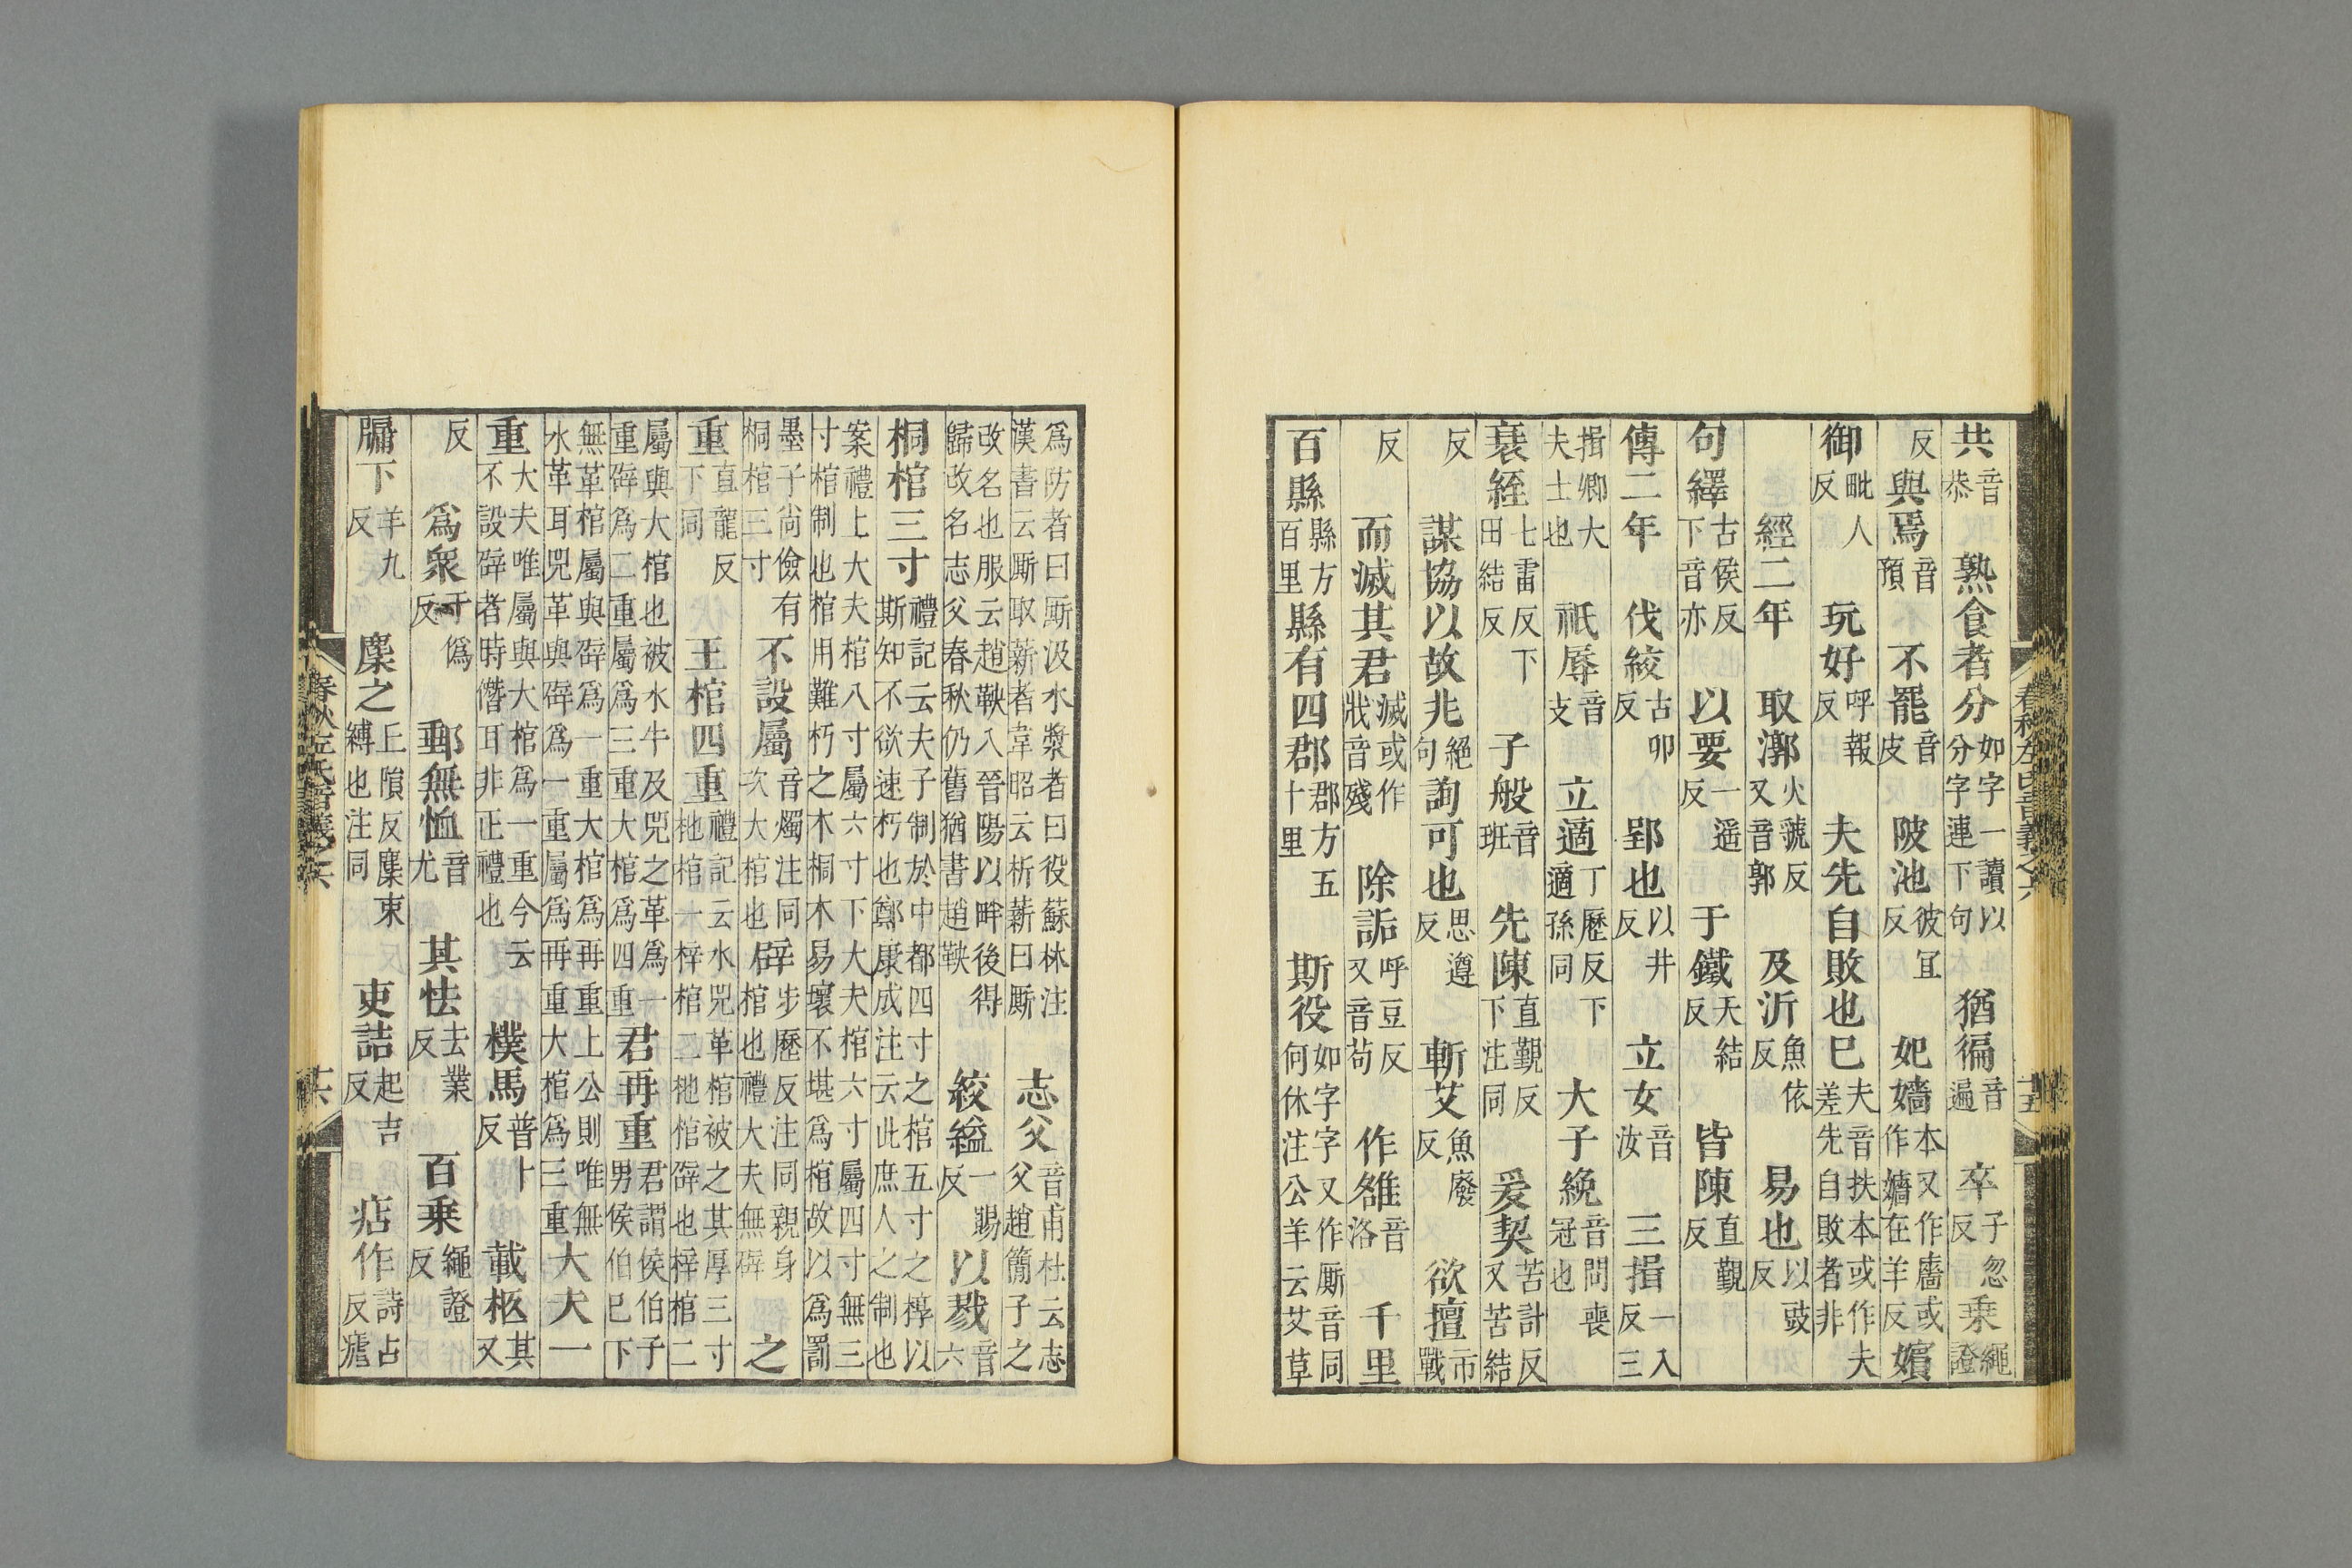 春秋左氏音義之六 十五
共音恭 熟食者分如字一讀以分字連下句 猶徧音遍 卒子忽反 乘繩證
反 與焉音預 不罷音皮 陂池彼宜反 妃嬙本又作廧或作嬙在羊反 嬪
御毗人反 玩好呼報反 夫先自敗也已夫音扶本或作夫差先自敗者非
經二年 取漷火虢反又音郭 及沂魚依反 易也以豉反
句繹古侯反下音亦 以要一遥反 于鐵天結反 皆陳直覲反
傳二年 伐絞古卯反 郢也以井反 立女音汝 三揖一入反三
揖卿大夫士也 祇辱音支 立適丁歷反下適孫同 大子絻音問喪冠也
衰絰七雷反下田結反 子般音班 先陳直覲反下注同 爰契苦計反又苦結
反 謀協以故兆絕句 詢可也思遵反 斬艾魚廢反 欲擅市戰
反 而滅其君滅或作戕音殘 除詬呼豆反又音苟 作雒音洛 千里
百縣縣方百里 縣有四郡郡方五十里 斯役如字字又作廝音同何休注公羊云艾草
爲防者曰廝汲水漿者曰役蘇林注漢書云廝取薪者韋昭云析薪曰廝 志父音甫杜云志父趙簡子之
改名也服云趙鞅入晉陽以畔後得歸改名志父春秋仍舊猶書趙鞅 絞縊一賜反 以戮音六
桐棺三寸禮記云夫子制於中都四寸之棺五寸之椁以斯知不欲速朽也鄭康成注云此庶人之制也
案禮上大夫棺八寸屬六寸下大夫棺六寸屬四寸無三寸棺制也棺用難朽之木桐木易壞不堪爲棺故以爲罰
墨子尚儉有桐棺三寸 不設屬音燭注同次大棺也 辟步歷反注同親身棺也禮大夫無椑 之
重直龍反下同 王棺四重禮記云水兕革棺被之其厚三寸杝棺一梓棺二杝棺椑也梓棺二
屬與大棺也被水牛及兕之革爲一重椑爲二重屬爲三重大棺爲四重 君再重君謂侯伯子男侯伯已下
無革棺屬與椑爲一重大棺爲再重上公則唯無水革耳兕革與椑爲一重屬爲再重大棺爲三重 大夫一
重大夫唯屬與大棺爲一重今云不設椑者時僭耳非正禮也 樸馬普卜反 載柩其又
反 爲衆于僞反 郵無恤音尤 其怯去業反 百乘繩證反
牖下羊九反 麇之丘隕反麇束縛也注同 吏詰起吉反 痁作詩占反瘧
春秋左氏音義之六 十六